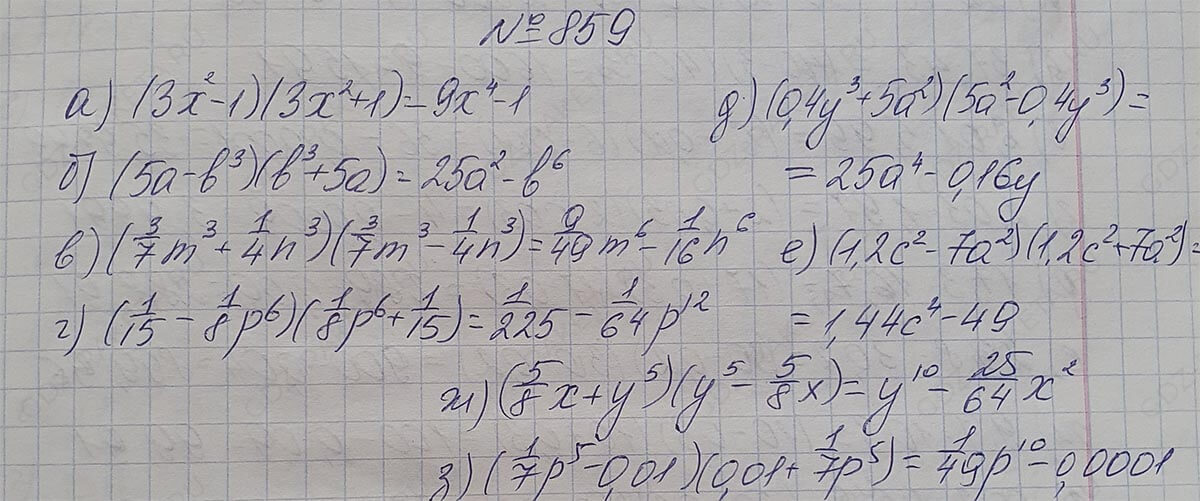 № 859
а) (3x²-1)(3x²+1)=9x⁴-1
б) (5a-b³)(b³+5a)=25a²-b⁶
в) (3/7m³+1/4n³)(3/7m³-1/4n³)=9/49m⁶-1/16n⁶
г) (1/15-1/8p⁶)(1/8p⁶+1/15)=1/225-1/64p¹²
д) (0,4y³+5a²)(5a²-0,4y³)=
=25a⁴-0,16y
е) (1,2c²-7a²)(1,2c²+7a²)=
=1,44c⁴-49
ж) (5/8x+y⁵)(y⁵-5/8x)=y¹⁰-25/64x²
з) (1/7p⁵-0,01)(0,01+1/7p⁵)=1/49p¹⁰-0,0001